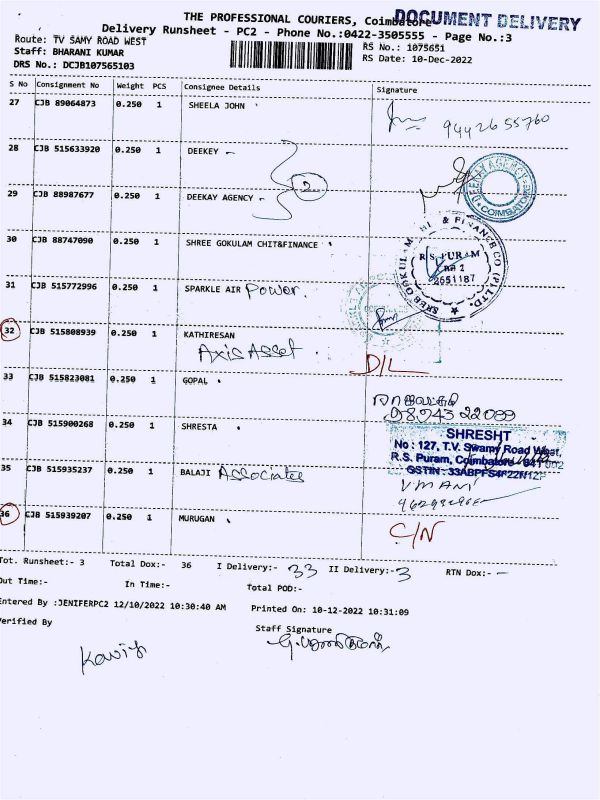 THE PROFESSIONAL COURIERS, Coimbatore
DOCUMENT DELIVERY
Delivery Runsheet - PC2 - Phone No.:0422-3505555 - Page No.:3
Route: TV SAMY ROAD WEST
RS No.: 1075651
Staff: BHARANI KUMAR
RS Date: 10-Dec-2022
DRS No.: DCJB107565103
S No Consignment No Weight PCS Consignee Details Signature
27 CJB 89064873 0.250 1 SHEELA JOHN
9442655760
28 CJB 515633920 0.250 1 DEEKEY
2
DEEKAY AGENCY COIMBATORE
29 CJB 88987677 0.250 1 DEEKAY AGENCY
30 CJB 88747090 0.250 1 SHREE GOKULAM CHIT&FINANCE
SREE GOKULAM CHIT & FINANCE CO (P) LTD.
R.S. PURAM
2651187
31 CJB 515772996 0.250 1 SPARKLE AIR Power.
32 CJB 515808939 0.250 1 KATHIRESAN
Axis Asset
D/L
33 CJB 515823081 0.250 1 GOPAL
34 CJB 515900268 0.250 1 SHRESTA
SHRESHT
No : 127, T.V. Swamy Road West,
R.S. Puram, Coimbatore - 641 002
GSTIN : 33ABPFS4F22N1ZP
35 CJB 515935237 0.250 1 BALAJI Associates
VMANI
36 CJB 515939207 0.250 1 MURUGAN
C/N
Tot. Runsheet:- 3 Total Dox:- 36 I Delivery:- 33 II Delivery:- 3 RTN Dox:- -
Out Time:- In Time:- Total POD:-
Entered By :JENIFERPC2 12/10/2022 10:30:40 AM Printed On: 10-12-2022 10:31:09
Verified By Staff Signature